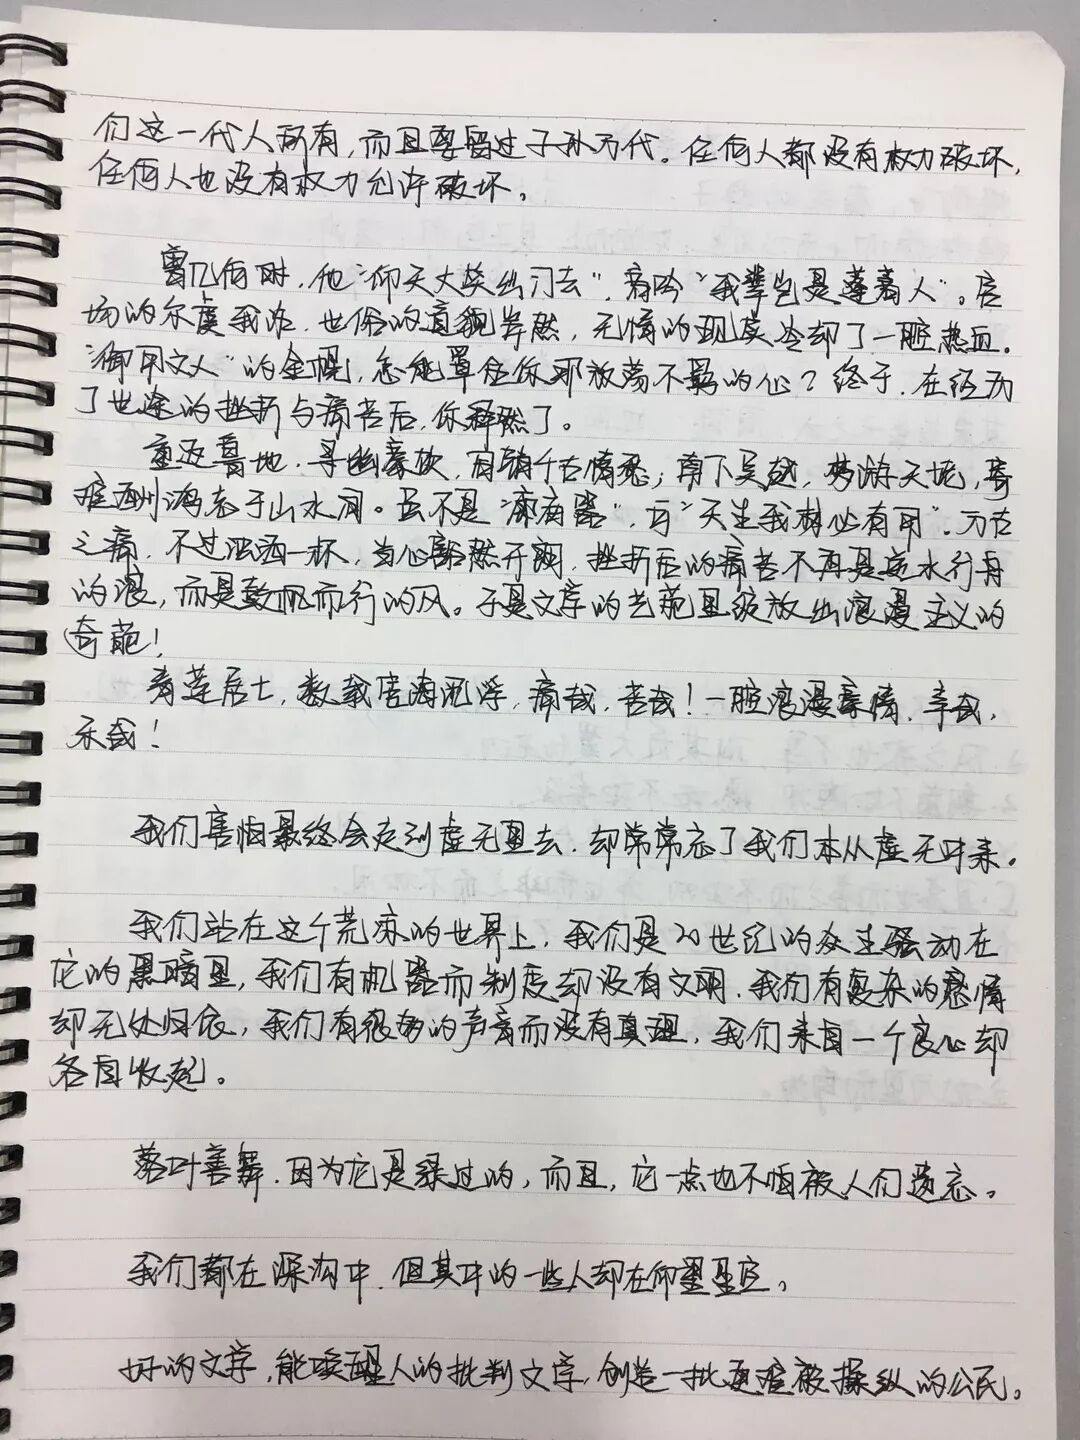 们这一代人所有,而且要留过子孙万代。任何人都没有权力破坏,
任何人也没有权力允许破坏。
曾几何时,他“仰天大笑出门去”,高吟“我辈岂是蓬蒿人”。官
场的尔虞我诈,世俗的道貌岸然,无情的现实冷却了一腔热血。
“御用文人”的金幌,怎能罩住你那放荡不羁的心?终于,在经历
了世途的挫折与痛苦后,你释然了。
重返蜀地,寻幽豪饮,自销千古情愁;南下吴越,梦游天姥,寄
难酬鸿志于山水间。虽不是“廊庙器”,亦“天生我材必有用”。万古
之痛,不过浊酒一杯,当心豁然开朗,挫折后的痛苦不再是逆水行舟
的浪,而是鼓帆而行的风。于是文学的艺苑里绽放出浪漫主义的
奇葩!
青莲居士,数载宦海沉浮,痛哉,苦哉!一腔浪漫豪情,幸哉,
乐哉!
我们害怕最终会走到虚无里去,却常常忘了我们本从虚无中来。
我们站在这个荒凉的世界上,我们是20世纪的众生骚动在
它的黑暗里,我们有机器而制度却没有文明,我们有复杂的感情
却无处归依,我们有很多的声音而没有真理,我们来自一个良心却
各自收起。
落叶善舞,因为它是绿过的,而且,它一点也不怕被人们遗忘。
我们都在深沟中,但其中的一些人却在仰望星空。
好的文字,能唤醒人的批判文字,创造一批更难被操纵的公民。